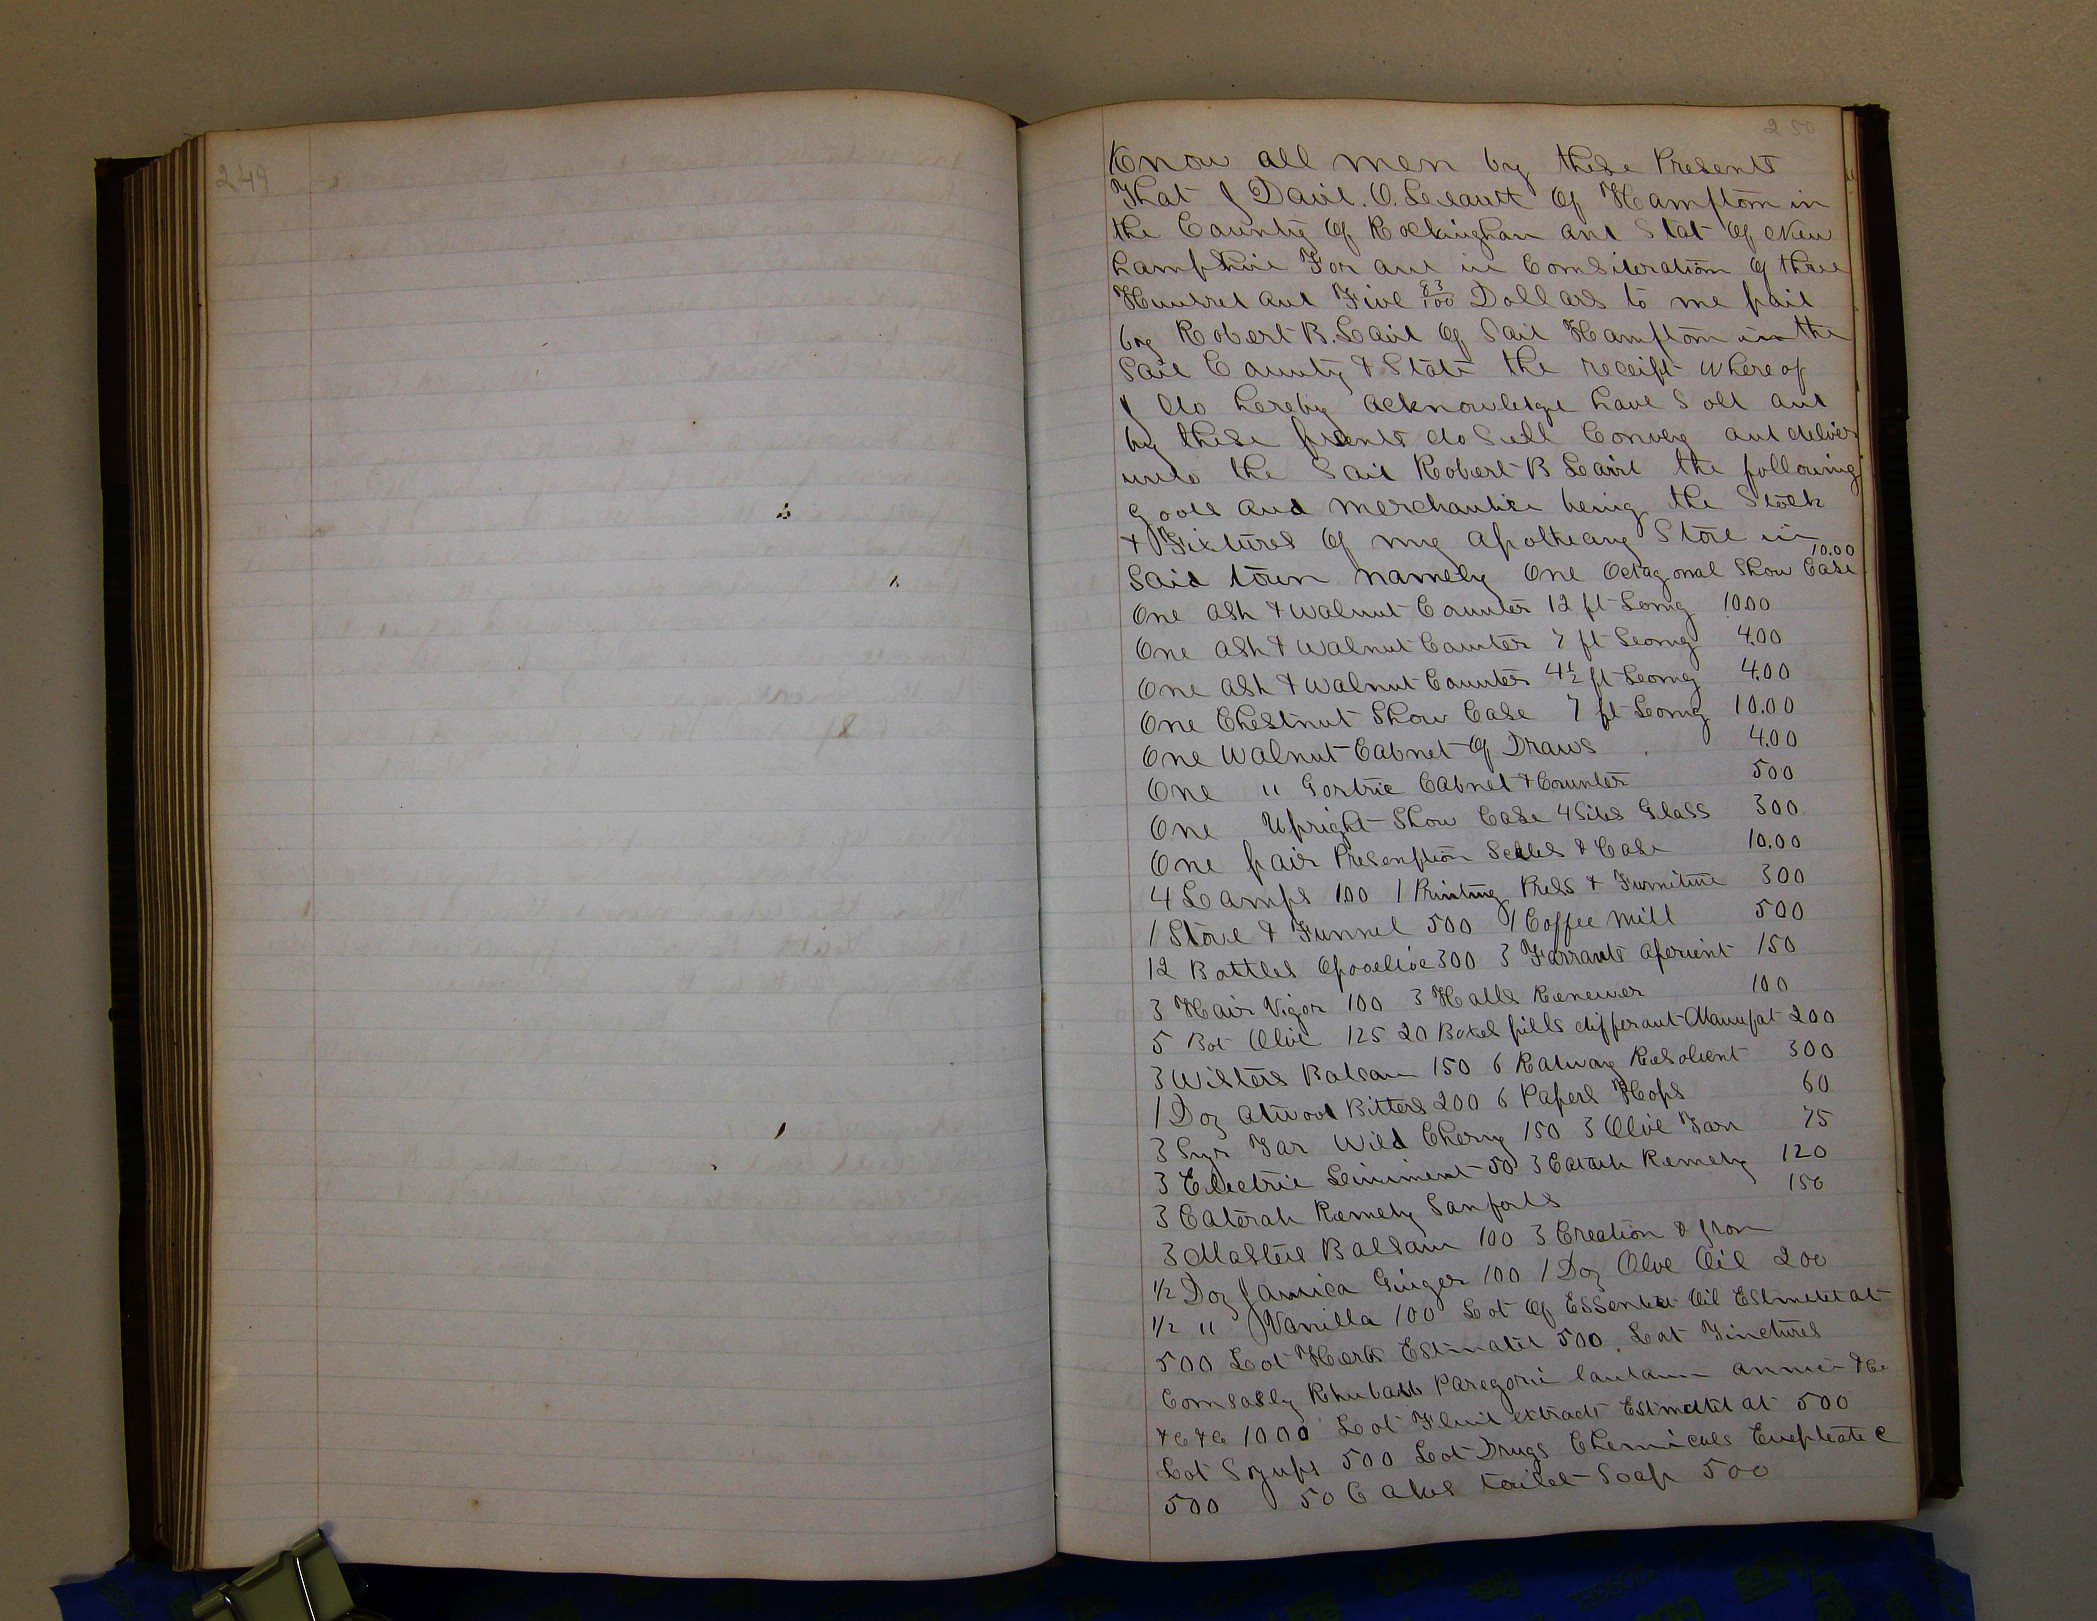 249
250
Know all men by these Presents
That I David. O. Leavitt Of Hampton in
the County Of Rockingham and Stat Of New
hampshire For and in Consideration of three
Hundred and Five 83/100 Dollars to me paid
by Robert B. Laird Of Said Hampton in the
Said County & State the receipt whereof
I do hereby acknowledge have Sold and
by these presents do Sell Convey and deliver
unto the Said Robert B Laird the following
goods and merchandise being the Stock
& Fixtures Of my Apothecary Store in
Said town namely One Octagonal Show Case 10.00
One Ash & Walnut Counter 12 ft Long 10.00
One Ash & Walnut Counter 7 ft Leong 4.00
One Ash & Walnut Counter 4 1/2 ft Leong 4.00
One Chestnut Show Case 7 ft Leong 10.00
One Walnut Cabnet Of Draws 4.00
One " Cabnet & Counter 500
One Upright Show Case 4 Sides Glass 300
One pair Prescription Scales & Case 10.00
4 Lamps 100 1 Printing Press & Furniture 300
1 Stove & Funnel 500 1 Coffee Mill 500
12 Bottles 300 3 Tarrants Aperient 150
3 Hair Vigor 100 3 Halls Renewer 100
5 Bot Olive 125 20 Boxes pills differant Manufat 200
3 Wisters Balsam 150 6 Radway Resolvent 300
1 Doz Atwood Bitters 200 6 Papers Hops 60
3 Syr Tar Wild Cherry 150 3 Olive Tar 75
3 Electric Leiniment 50 3 Catarh Remedy 120
3 Caterah Remedy Sanfords 150
3 Masters Balsam 100 3 & Iron
1/2 Doz Jamica Ginger 100 1 Doz Olve Oil 200
1/2 " Vanilla 100 Lot Of Essential Oil Estimeted at
500 Lot Herbs Estimated 500. Lot Tinctures
Rhubarb Paregoric &c
&c &c 1000 Lot Fluid extracts Estimated at 500
Lot Syrups 500 Lot Drugs Chemicals
500 50 Cakes toilet Soap 500